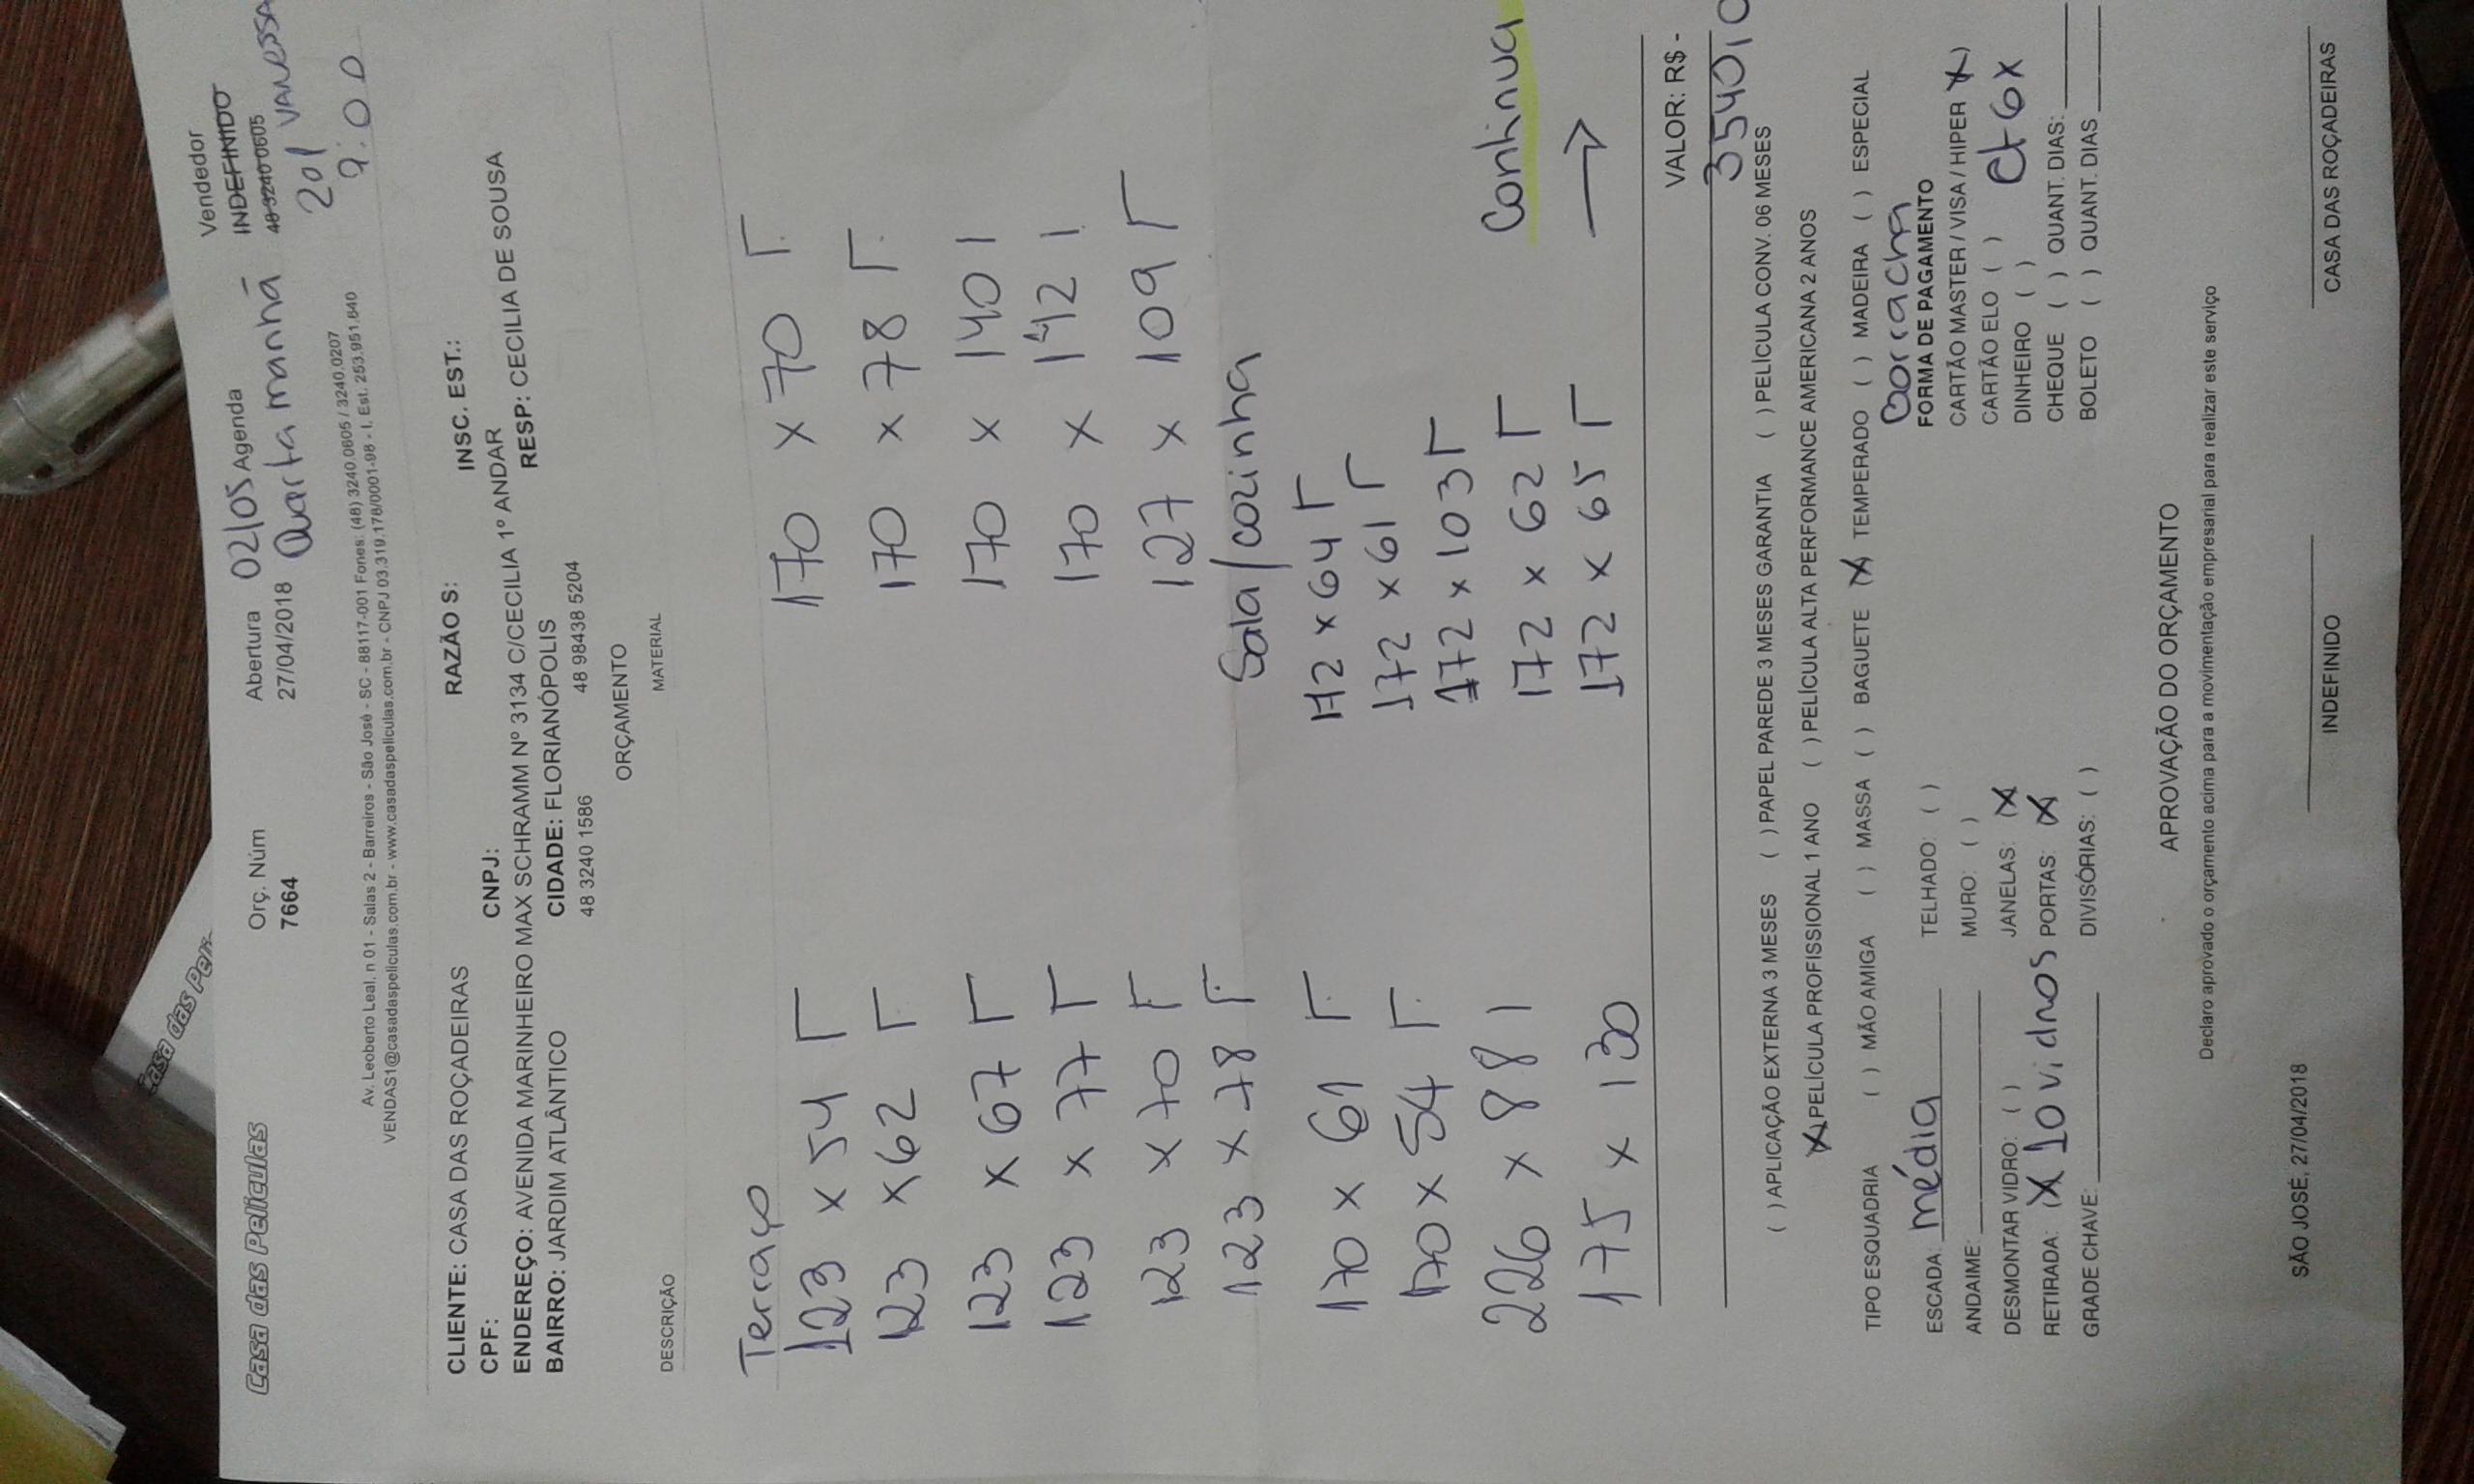 Casa das Películas
Orç. Núm
7664
Abertura
27/04/2018
02/05 Agenda
Quarta manhã
Vendedor
INDEFINIDO
48 3240 0605
201 VANESSA
9:00
Av. Leoberto Leal, n 01 - Salas 2 - Barreiros - São José - SC - 88117-001 Fones: (48) 3240.0605 / 3240.0207
VENDAS1@casadaspeliculas.com.br - www.casadaspeliculas.com.br - CNPJ 03.319.178/0001-98 - I. Est. 253.951.640
CLIENTE: CASA DAS ROÇADEIRAS RAZÃO S: INSC. EST.:
CPF: CNPJ:
ENDEREÇO: AVENIDA MARINHEIRO MAX SCHRAMM Nº 3134 C/CECILIA 1º ANDAR
BAIRRO: JARDIM ATLÂNTICO CIDADE: FLORIANÓPOLIS RESP: CECILIA DE SOUSA
48 3240 1586 48 98438 5204
ORÇAMENTO
DESCRIÇÃO MATERIAL
Terraço
123 x 54 Γ
123 x 62 Γ
123 x 67 Γ
123 x 77 Γ
123 x 70 Γ
123 x 78 Γ
170 x 61 Γ
170 x 54 Γ
226 x 88 I
175 x 130
170 x 70 Γ
170 x 78 Γ
170 x 140 I
170 x 142 I
127 x 109 Γ
Sala/cozinha
172 x 64 Γ
172 x 61 Γ
172 x 103 Γ
172 x 62 Γ
172 x 65 Γ
Continua
→
VALOR: R$ -
3540,0
( ) APLICAÇÃO EXTERNA 3 MESES ( ) PAPEL PAREDE 3 MESES GARANTIA ( ) PELÍCULA CONV. 06 MESES
(X) PELÍCULA PROFISSIONAL 1 ANO ( ) PELÍCULA ALTA PERFORMANCE AMERICANA 2 ANOS
TIPO ESQUADRIA ( ) MÃO AMIGA ( ) MASSA ( ) BAGUETE (X) TEMPERADO ( ) MADEIRA ( ) ESPECIAL
borracha
ESCADA: média
ANDAIME:
DESMONTAR VIDRO: ( )
RETIRADA: (X 10 vidros
GRADE CHAVE:
TELHADO: ( )
MURO: ( )
JANELAS: (X
PORTAS: X
DIVISÓRIAS: ( )
FORMA DE PAGAMENTO
CARTÃO MASTER / VISA / HIPER X)
CARTÃO ELO ( ) Ct 6x
DINHEIRO ( )
CHEQUE ( ) QUANT. DIAS:
BOLETO ( ) QUANT. DIAS
APROVAÇÃO DO ORÇAMENTO
Declaro aprovado o orçamento acima para a movimentação empresarial para realizar este serviço
SÃO JOSÉ, 27/04/2018
INDEFINIDO
CASA DAS ROÇADEIRAS